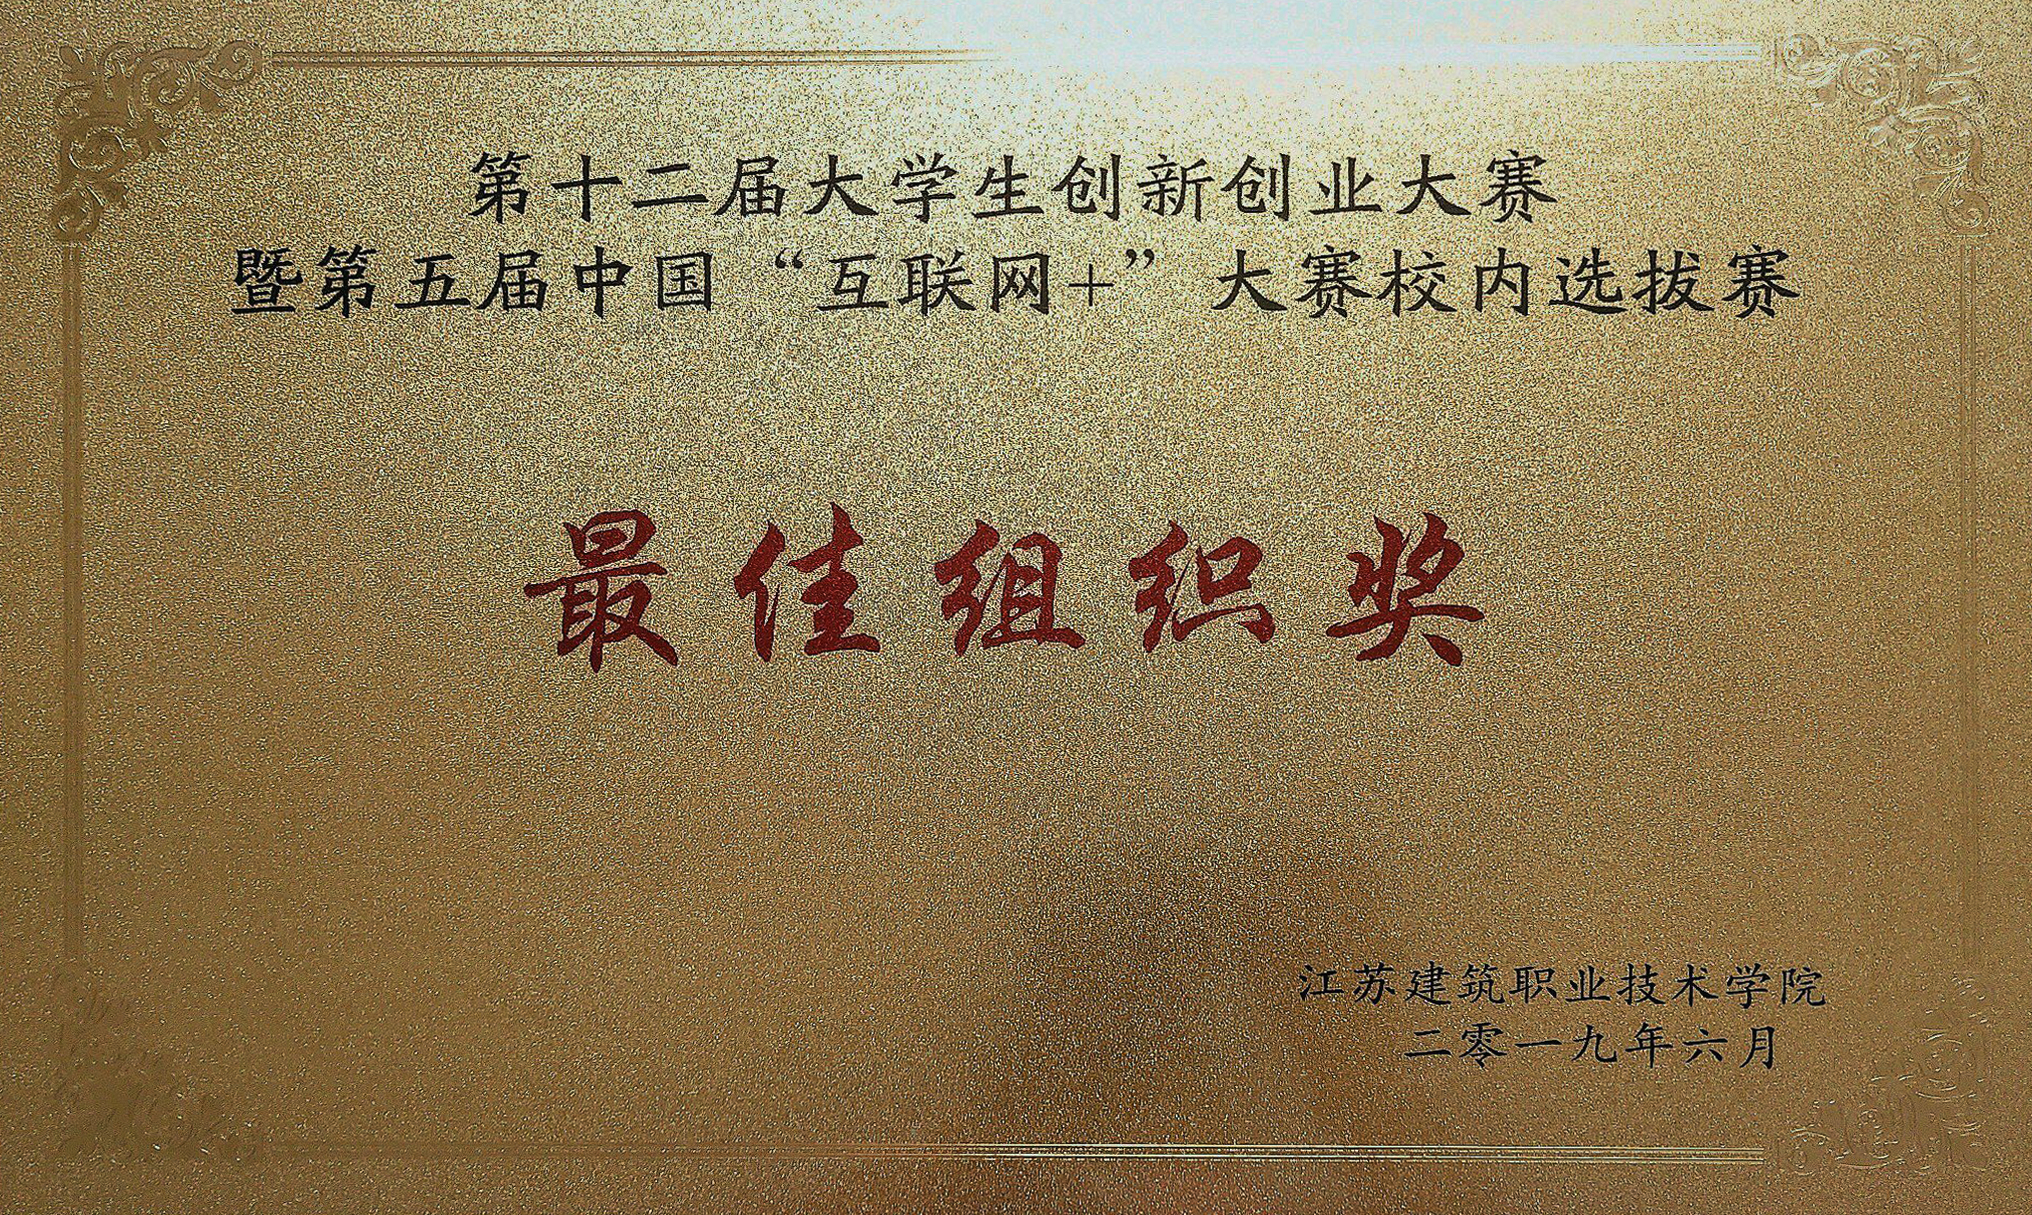 第十二届大学生创新创业大赛
暨第五届中国“互联网+”大赛校内选拔赛
最佳组织奖
江苏建筑职业技术学院
二零一九年六月